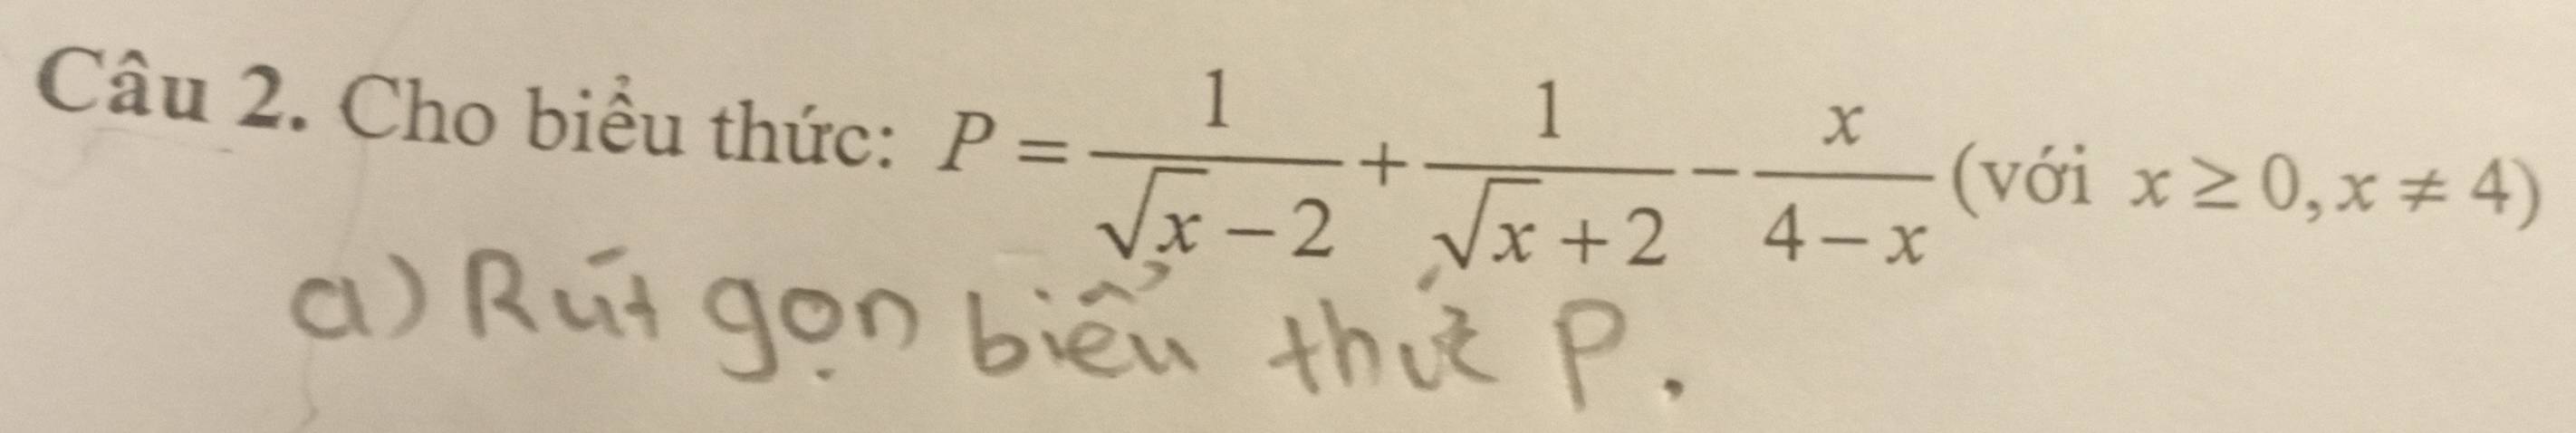 Câu 2. Cho biểu thức: P = \frac{1}{\sqrt{x}-2} + \frac{1}{\sqrt{x}+2} - \frac{x}{4-x} (với x ≥ 0, x ≠ 4)
a) Rút gọn biểu thức P.